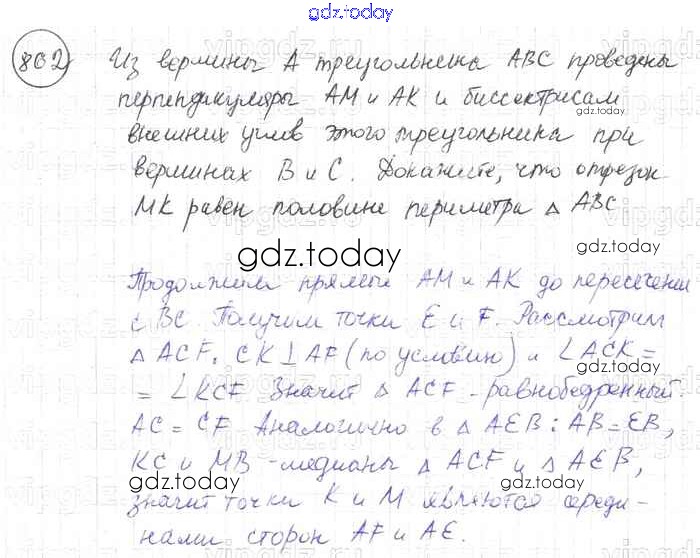 gdz.today
862) Из вершины А треугольника ABC проведены
перпендикуляры AM и AK к биссектрисам
внешних углов этого треугольника при
вершинах B и C. Докажите, что отрезок
MK равен половине периметра △ ABC
gdz.today
gdz.today
Продолжим прямые AM и AK до пересечении
с BC. Получим точки E и F. Рассмотрим
△ ACF, CK ⊥ AF (по условию) и ∠ACK =
= ∠KCF. Значит △ ACF - равнобедренный.
AC = CF. Аналогично в △ AEB: AB = EB,
KC и MB - медианы △ ACF и △ AEB,
значит точки K и M являются середи-
нами сторон AF и AE.
gdz.today